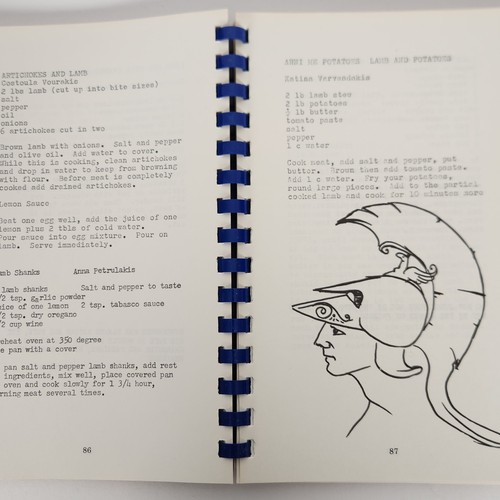 ARTICHOKES AND LAMB
Costoula Vourakis
2 lbs lamb (cut up into bite sizes)
salt
pepper
oil
onions
6 artichokes cut in two
Brown lamb with onions. Salt and pepper
and olive oil. Add water to cover.
While this is cooking, clean artichokes
and drop in water to keep from browning
with flour. Before meat is completely
cooked add drained artichokes.
Lemon Sauce
Beat one egg well, add the juice of one
lemon plus 2 tbls of cold water.
Pour sauce into egg mixture. Pour on
lamb. Serve immediately.
amb Shanks Anna Petrulakis
lamb shanks Salt and pepper to taste
/2 tsp. garlic powder
uice of one lemon 2 tsp. tabasco sauce
/2 tsp. dry oregano
/2 cup wine
eheat oven at 350 degree
e pan with a cover
pan salt and pepper lamb shanks, add rest
ingredients, mix well, place covered pan
oven and cook slowly for 1 3/4 hour,
rning meat several times.
86
ME POTATOES LAMB AND POTATOES
Katina
2 lb lamb stew
2 lb potatoes
butter
tomato paste
salt
pepper
1 c water
Cook meat, add salt and pepper, put
butter. Brown then add tomato paste.
Add 1 c water. Fry your potatoes,
round large pieces. Add to the partial
cooked lamb and cook for 10 minutes more
87